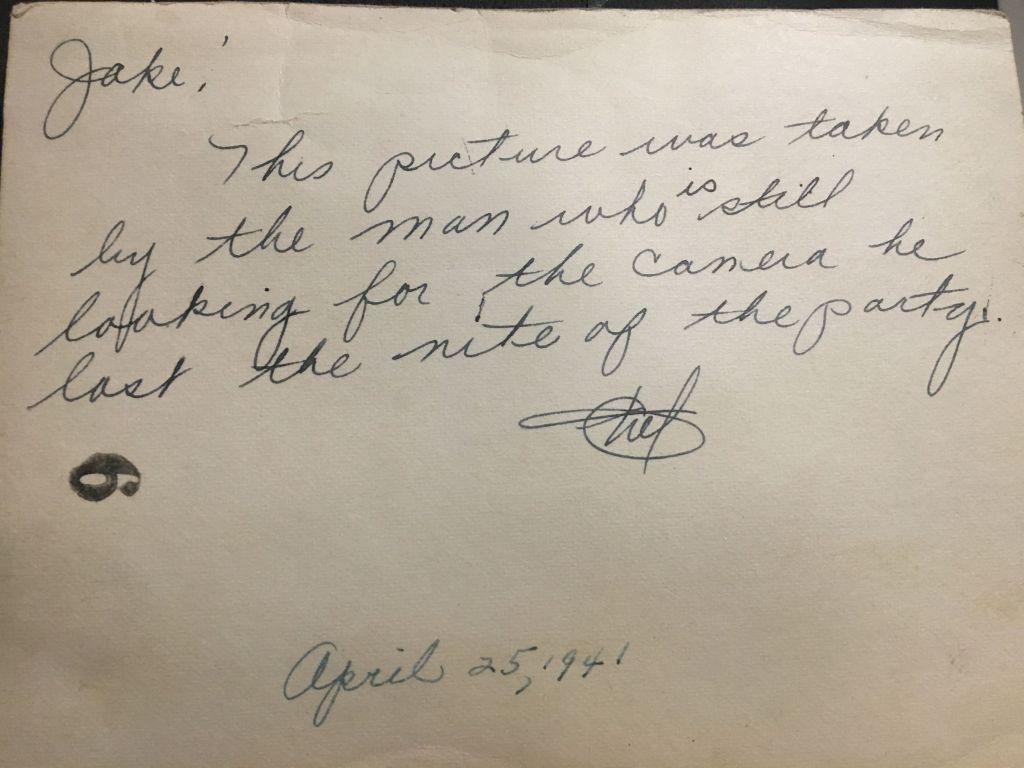 Jake!
This picture was taken
by the man who is still
looking for the camera he
lost the nite of the party.
Chef
6
April 25, 1941